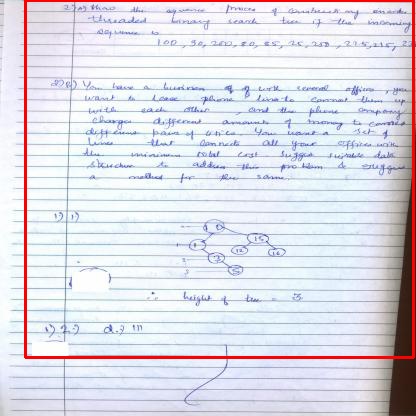 2) A) Show the sequence process of constructing an inorder
threaded binary search tree if the incoming
sequence is
100, 50, 200, 80, 85, 25, 250, 225, 215,
2) B) You have a business of with several offices, you
want to lease phone line to connect them up
with each other, and the phone company
charges different amounts of money to connect
different pairs of offices. You want a set of
lines that connects all your offices with
the minimum total cost suggest suitable data
structure to address this problem & suggest
a method for the same.
1) 1)
10
1 15
7 12 16
5
∴ height of tree = 3
1) 2.) d.) 111